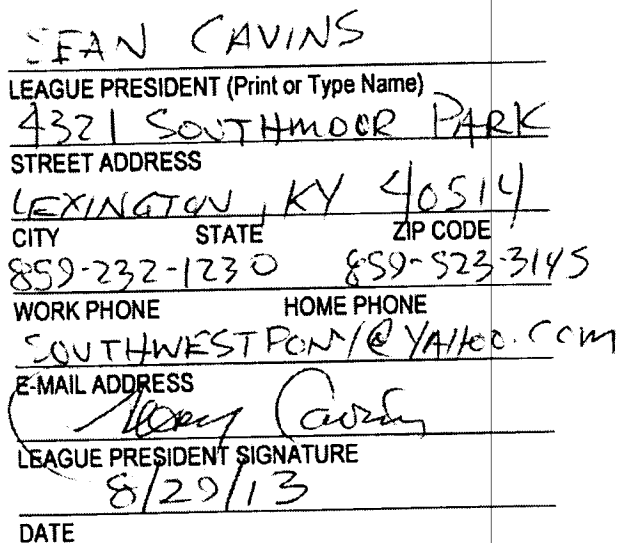 SEAN CAVINS
LEAGUE PRESIDENT (Print or Type Name)
4321 SOUTHMOOR PARK
STREET ADDRESS
LEXINGTON, KY 40514
CITY STATE ZIP CODE
859-232-1230 859-523-3145
WORK PHONE HOME PHONE
SOUTHWESTPONY@YAHOO.COM
E-MAIL ADDRESS
Cavins
LEAGUE PRESIDENT SIGNATURE
8/29/13
DATE